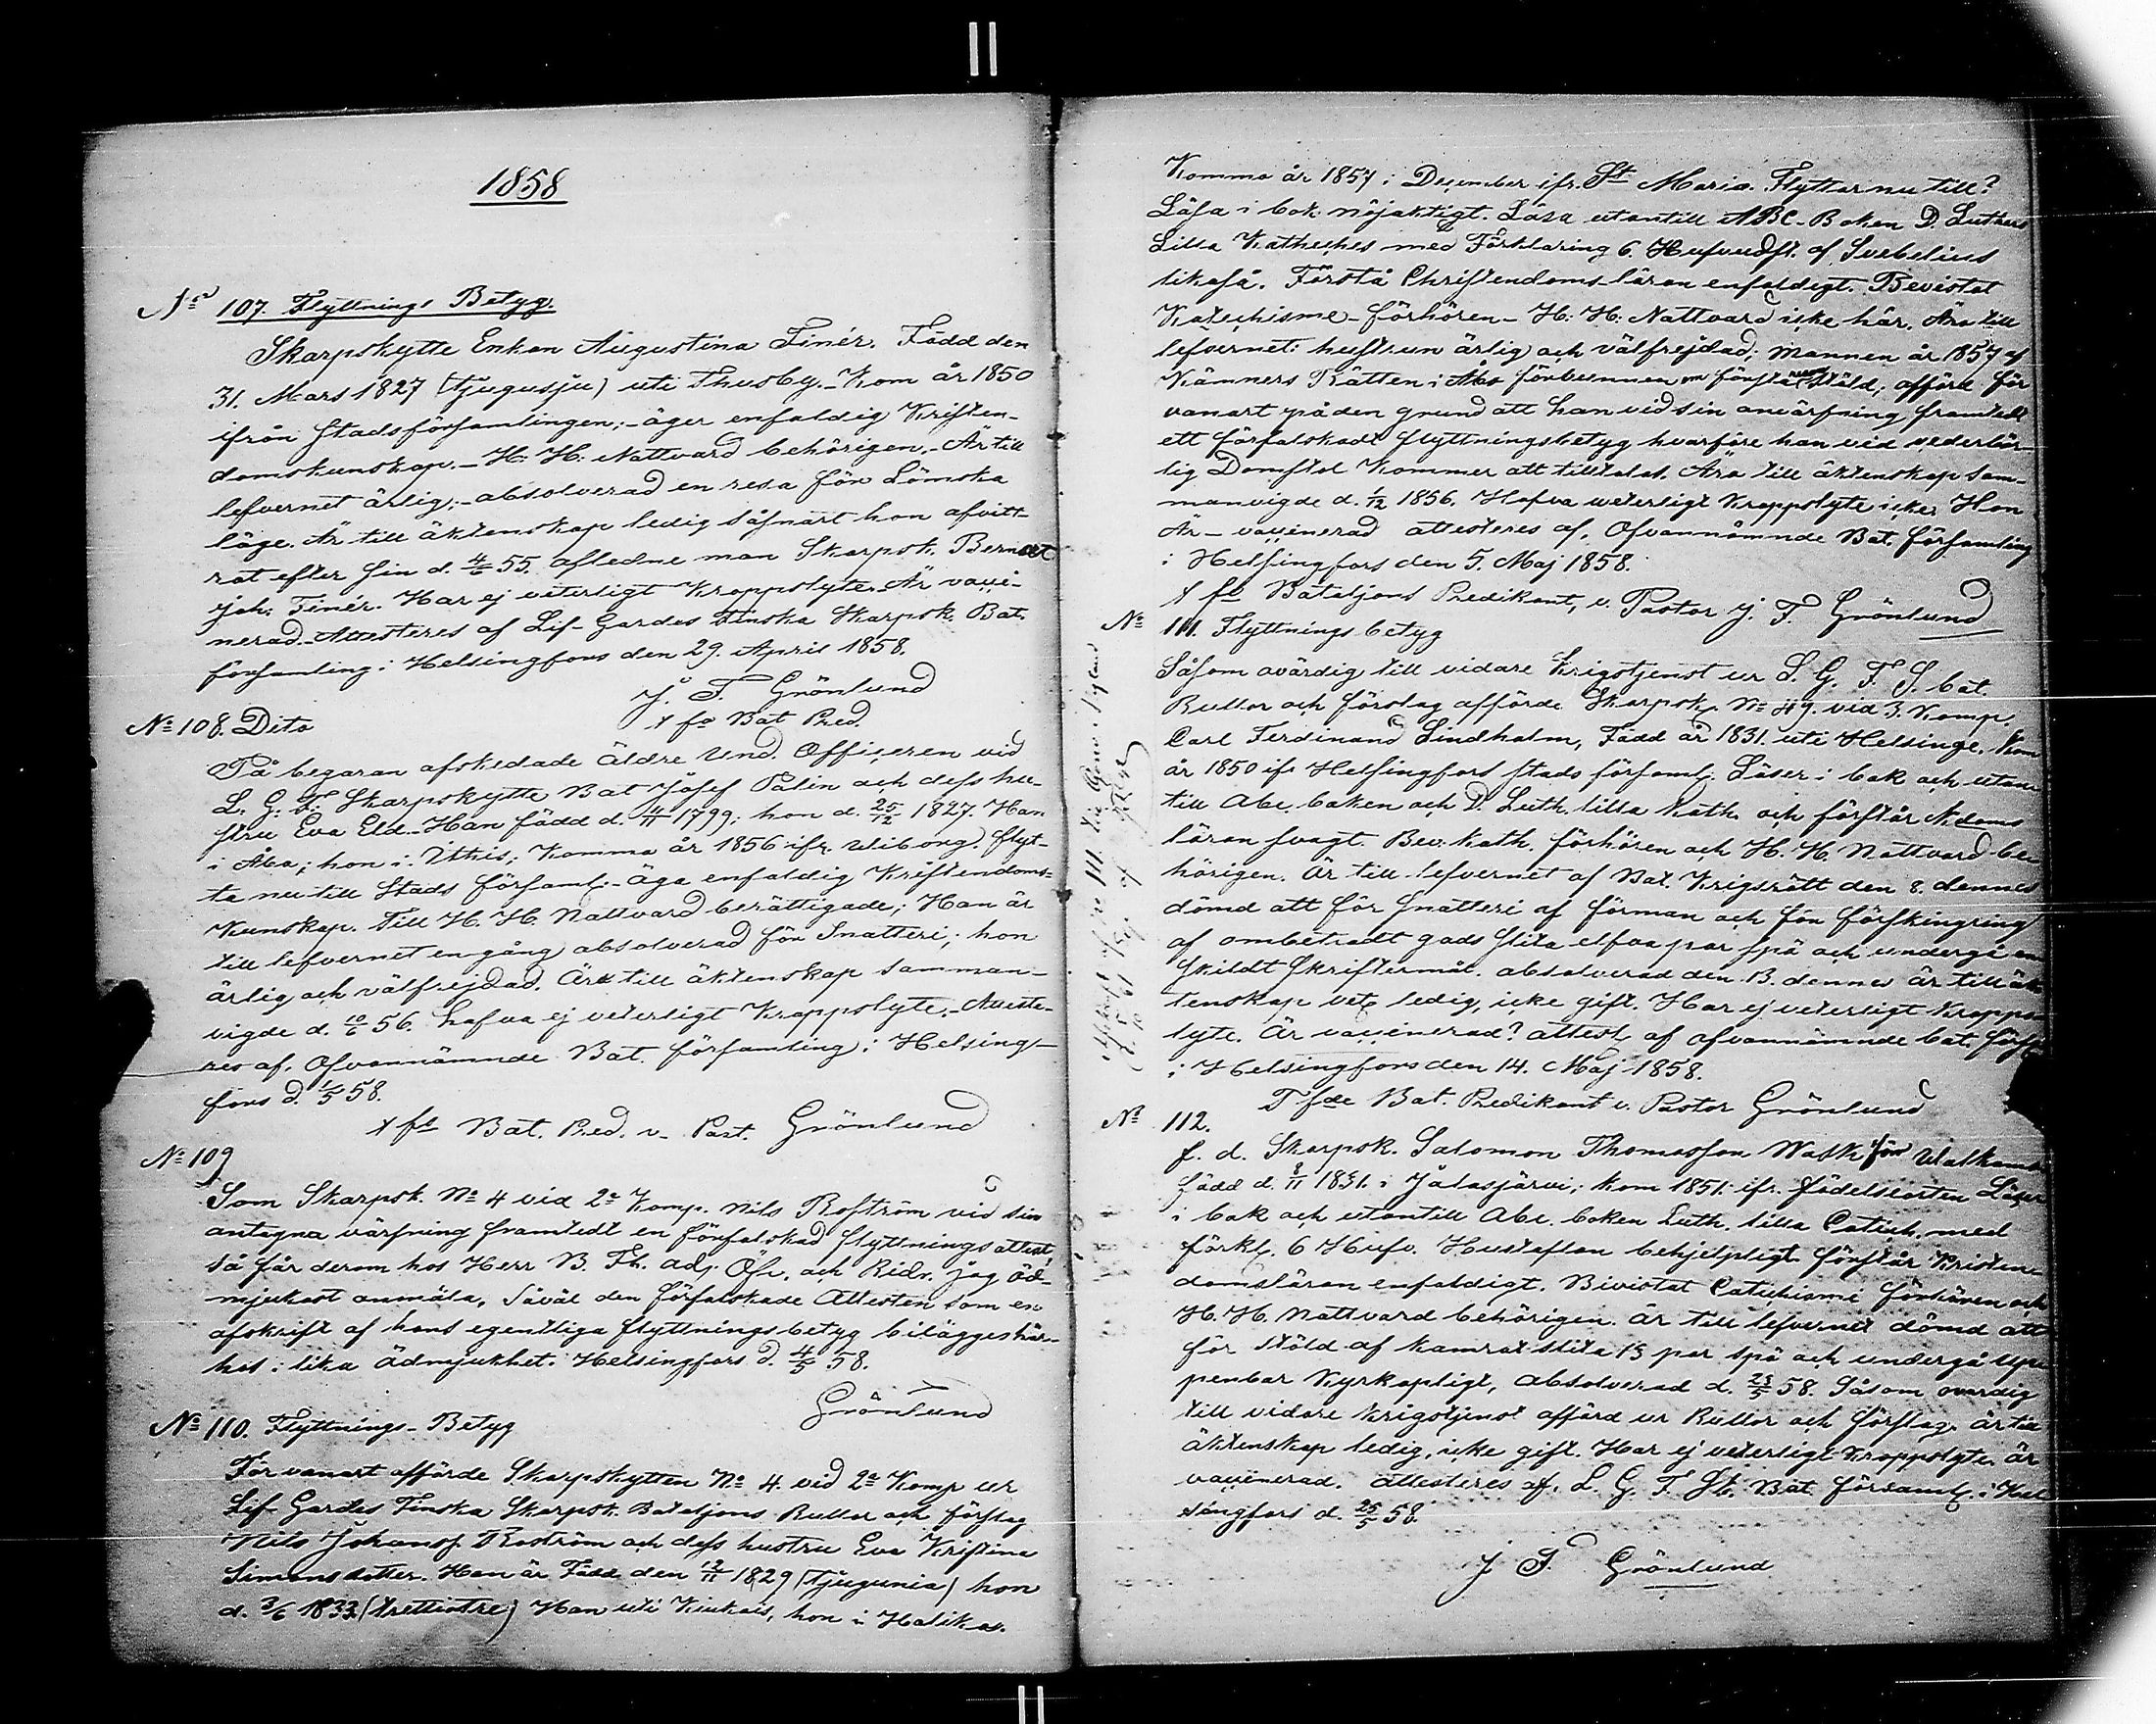 1858
No 107. Flyttnings Betyg.
Skarpskytte Enkan Augustina Finér. Född den
31. Mars 1827 (tjugusju) uti Thusby. Kom år 1850
ifrån stadsförsamlingen; äger enfaldig Kristen-
domskunskap. H. H. Nattvard behörigen. Är till
lefvernet ärlig; absolverad en resa för Lönska
läge. Är till äktenskap ledig såsnart hon afvitt-
rat efter sin d. 4/6 55. afledne man Skarpsk. Berndt
Joh. Finér. Har ej veterligt Kroppslyte. Är vacci-
nerad. Attesteres af Lif-Gardes Finska Skarpsk. Bat.
församling i Helsingfors den 29. April 1858.
J. F. Grönlund
t fo Bat Pred.
No 108. Dito
På begäran afskedade äldre Und. Officeren vid
L. G. F. Skarpskytte Bat Josef Palin och dess hu-
stru Eva Eld. Han född d. 4/11 1799; hon d. 25/12 1827. Han
i Åbo; hon i Itthis; Komma år 1856 ifr. Wiborg. flyt-
ta nu till Stads församl. Äga enfaldig Kristendoms-
Kunskap. Till H. H. Nattvard berättigade; Han är
till lefvernet en gång absolverad för Snatteri; hon
ärlig och välfrejdad. Äro till äktenskap samman-
vigde d. 10/6 56. hafva ej veterligt Kroppslyte. Atteste-
res af. Ofvannämnde Bat. församling i Helsing-
fors d. 1/5 58.
t fo Bat. Pred. v. Past. Grönlund
No 109
Som Skarpsk. No 4 vid 2a Komp. Nils Roström vid sin
antagna värfning framtedt en förfalskad flyttningsattest,
så får derom hos Herr B. Fh. adj. Öfv. och Ridr. jag öd-
mjukast anmäla. Såväl den förfalskade Attesten som en
afskrift af hans egentliga flyttningsbetyg biläggeshär-
hos i lika ödmjukhet. Helsingfors d. 4/5 58.
Grönlund
No 110. Flyttnings-Betyg
För vanart afförde Skarpskytten No 4. vid 2a Komp ur
Lif Gardes Finska Skarpsk. Bataljons Rullor och förslag
Nils Johanss. Roström och dess hustru Eva Kristina
Simonsdotter. Han är Född den 12/11 1829 (tjugunio) hon
d. 3/6 1833 (trettiotre) Han uti Kiukais, hon i Halikas.
Komma år 1857 i December ifr. St Maria. Flyttar nu till?
Läsa i bok nöjaktigt. Läsa utantill ABC-Boken D. Luthers
Lilla Katheches med Förklaring 6. Hufvudst. af Svebelius
likaså. Förstå Christendoms-läran enfaldigt. Bevistat
Katechisme-förhören. H. H. Nattvard icke här. Äro till
lefvernet: hustrun ärlig och välfrejdad; mannen år 1857 af
Kämners Rätten i Åbo förvunnen om första resan stöld; afförd för
vanart på den grund att han vid sin anvärfning framtedt
ett förfalskadt flyttningsbetyg hvarföre han vid vederbör-
lig Domstol Kommer att tilltalas. Äro till äktenskap sam-
manvigde d. 1/12 1856. Hafva veterligt Kroppslyte icke. Hon
Är vaccinerad attesteres af. Ofvannämnde Bat. församling
i Helsingfors den 5. Maj 1858.
t fo Bataljons Predikant, v. Pastor J. F. Grönlund
No 111. Flyttnings betyg
Såsom ovärdig till vidare Krigstjenst ur L. G. F. S. bat.
Rullor och förslag afförde Skarpsk. No 49. vid 3. Komp.
Carl Ferdinand Lindholm, Född år 1831. uti Helsinge. Kom
år 1850 ifr. Helsingfors stads församl. Läser i bok och utan
till Abc. boken och D. Luth. lilla Kath. och förstår Kdoms
läran svagt. Bev. kath. förhören och H. H. Nattvard be-
hörigen. Är till lefvernet af Bat. Krigsrätt den 8. dennes
dömd att för snatteri af förman och för förskingring
af ombetrodt gods slita elfva par spö och undergå en
skildt skriftermål. absolverad den 13. dennes är till äk-
tenskap vet. ledig, icke gift. Har ej veterligt Kropps
lyte. Är vaccinerad? attest. af ofvannämnde bat. förs.
i Helsingfors den 14. Maj 1858.
T fde Bat. Predikant v. Pastor Grönlund
No 112.
f. d. Skarpsk. Salomon Thomasson Walk för
född d. 8/11 1831. i Jalasjärvi; kom 1851. ifr. födelseorten Läser
i bok och utantill Abc. boken Luth. lilla Catich. med
förkl. 6 Hufv. Hustaflan behjelpligt förstår Kristen-
domsläran enfaldigt. Bivistat Catichismi förhören och
H. H. Nattvard behörigen. är till lefvernet dömd att
för stöld af kamrat slita 15 par spö och undergå up-
penbar Kyrkopligt, absolverad d. 23/5 58. Såsom ovärdig
till vidare Krigstjenst afförd ur Rullor och förslag. är till
äktenskap ledig, icke gift. Har ej veterligt Kroppslyte. är
vaccinerad. attesteres af. L. G. F. Sk. Bat församl. i Hel
singfors d. 25/5 58.
J F Grönlund